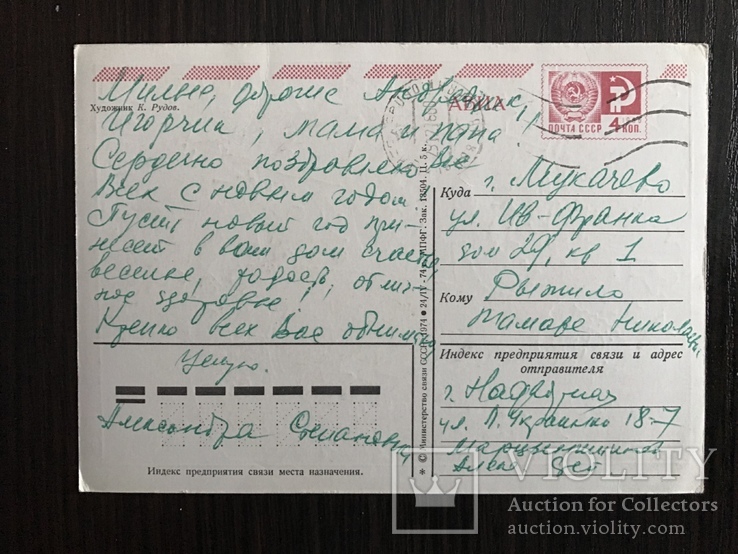 Милые, дорогие
Художник К. Рудов.
АВИА
ПОЧТА СССР 4 КОП.
Игорчик, мама и папа!!
Сердечно поздравляю Вас
Всех с новым годом
Пусть новый год при-
несёт в ваш дом счастье,
веселье, радость, отлич-
ное здоровье!!
Крепко всех Вас обнимаю
Целую.
Александра Степановна
Индекс предприятия связи места назначения.
* © Министерство связи СССР. 1974 ● 24/IV - 74. Зак. 13504. Ц. 5 к.
Куда г. Мукачево
ул. Ив-Франка
дом 29, кв 1
Кому Рыжило
Тамаре Николаевне
Индекс предприятия связи и адрес
отправителя
г. Надворная
ул. Л. Украинко 18-7
VIOLITY
Auction for Collectors
auction.violity.com